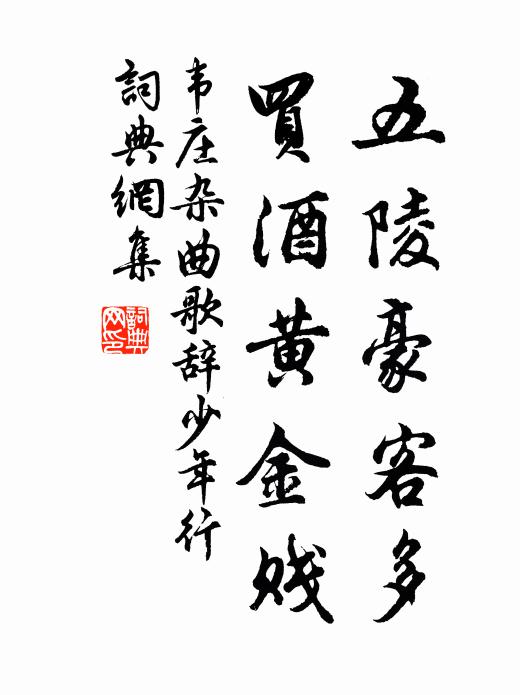 五陵豪客多
買酒黄金贱
韦庄杂曲歌辞少年行
詞典網集
詞典
网印